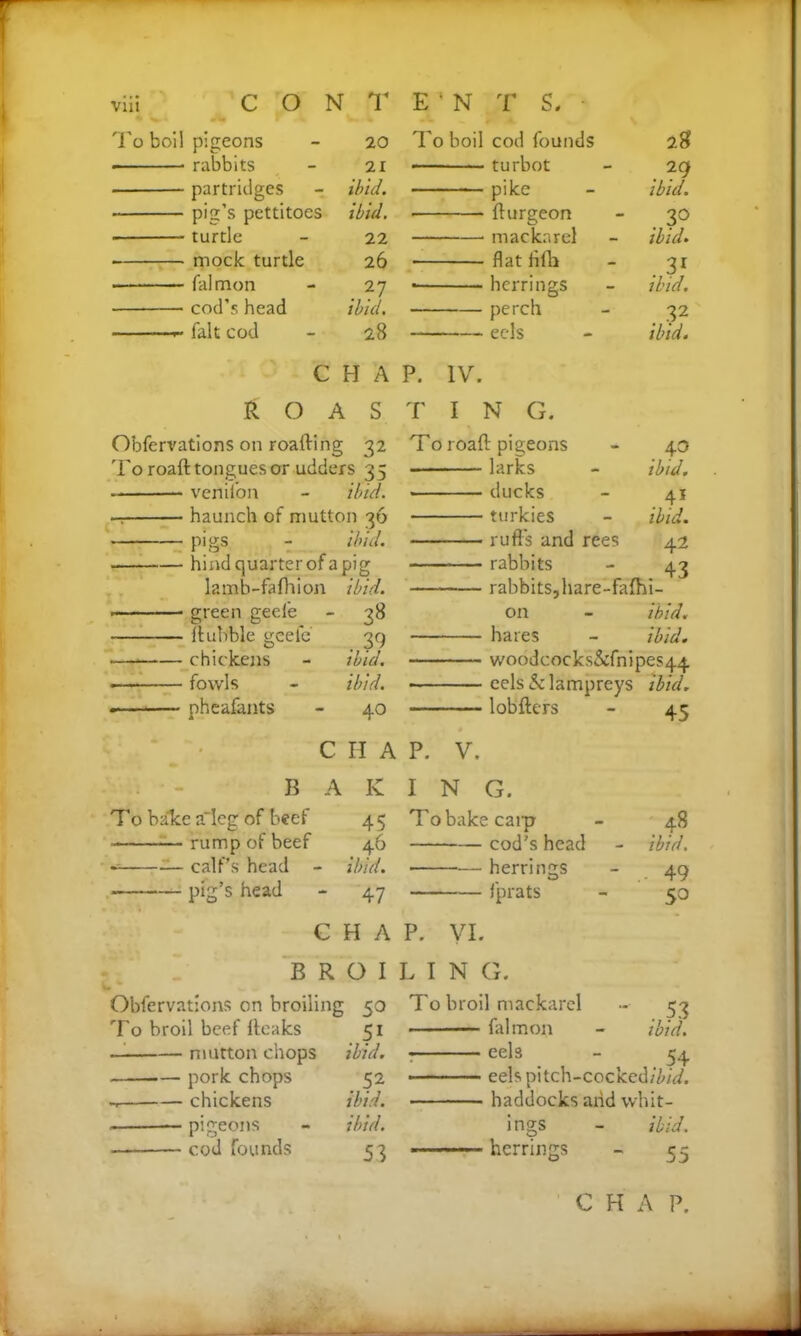 viii CONTENTS.
To boil pigeons - 20
——— rabbits - 21
——— partridges - ibid.
——— pig's pettitoes ibid.
——— turtle - 22
——— mock turtle 26
——— ſalmon - 27
——— cod's head ibid.
——— ſalt cod - 28
To boil cod ſounds 28
——— turbot - 29
——— pike - ibid.
——— ſturgeon - 30
——— mackarel - ibid.
——— flat fiſh - 31
——— herrings - ibid.
——— perch - 32
——— eels - ibid.
CHAP. IV.
ROASTING.
Obſervations on roaſting 32
To roaſt tongues or udders 35
——— veniſon - ibid.
——— haunch of mutton 36
——— pigs - ibid.
——— hind quarter of a pig
lamb-faſhion ibid.
——— green geeſe - 38
——— ſtubble geeſe 39
——— chickens - ibid.
——— fowls - ibid.
——— pheaſants - 40
To roaſt pigeons - 40
——— larks - ibid.
——— ducks - 41
——— turkies - ibid.
——— ruffs and rees 42
——— rabbits - 43
——— rabbits, hare-faſhi-
on - ibid.
——— hares - ibid.
——— woodcocks&ſnipes 44
——— eels & lampreys ibid.
——— lobſters - 45
CHAP. V.
BAKING.
To bake a leg of beef 45
——— rump of beef 46
——— calf's head - ibid.
——— pig's head - 47
To bake carp - 48
——— cod's head - ibid.
——— herrings - 49
——— ſprats - 50
CHAP. VI.
BROILING.
Obſervations on broiling 50
To broil beef ſteaks 51
——— mutton chops ibid.
——— pork chops 52
——— chickens ibid.
——— pigeons - ibid.
——— cod ſounds 53
To broil mackarel - 53
——— ſalmon - ibid.
——— eels - 54
——— eels pitch-cocked ibid.
——— haddocks and whit-
ings - ibid.
——— herrings - 55
CHAP.